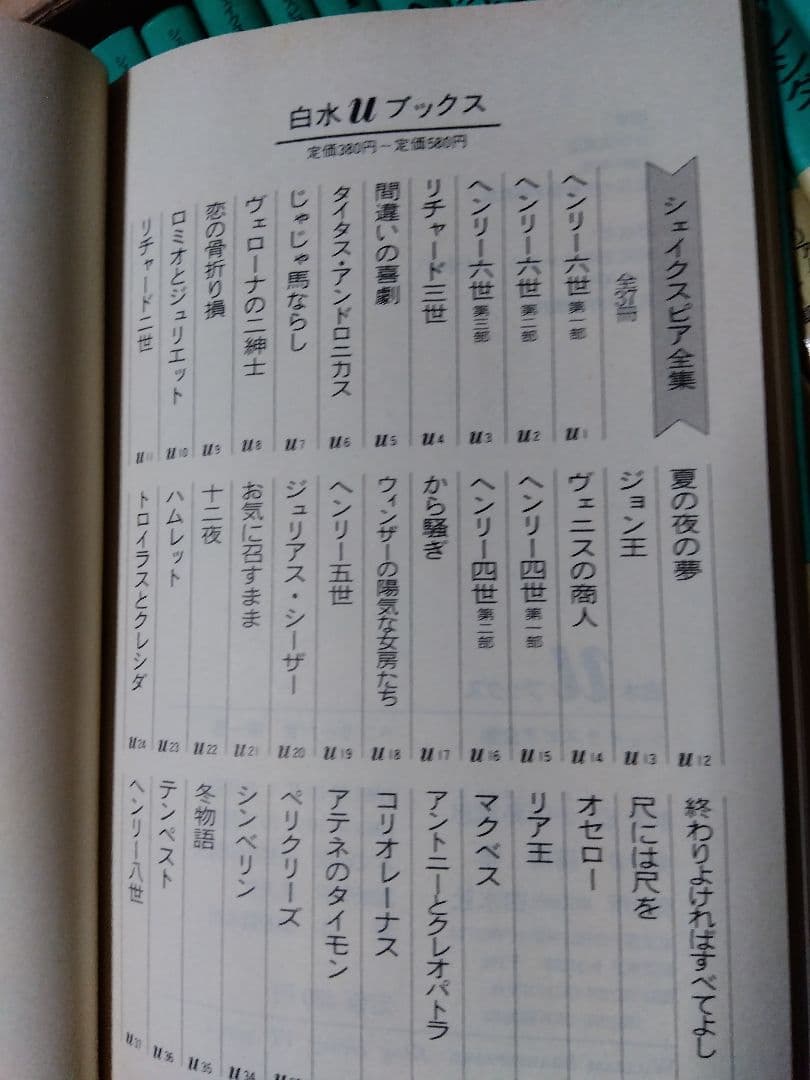 白水uブックス
定価380円～定価580円
シェイクスピア全集
全37冊
ヘンリー六世 第一部 u1
ヘンリー六世 第二部 u2
ヘンリー六世 第三部 u3
リチャード三世 u4
間違いの喜劇 u5
タイタス・アンドロニカス u6
じゃじゃ馬ならし u7
ヴェローナの二紳士 u8
恋の骨折り損 u9
ロミオとジュリエット u10
リチャード二世 u11
夏の夜の夢 u12
ジョン王 u13
ヴェニスの商人 u14
ヘンリー四世 第一部 u15
ヘンリー四世 第二部 u16
から騒ぎ u17
ウィンザーの陽気な女房たち u18
ヘンリー五世 u19
ジュリアス・シーザー u20
お気に召すまま u21
十二夜 u22
ハムレット u23
トロイラスとクレシダ u24
終わりよければすべてよし
尺には尺を
オセロー
リア王
マクベス
アントニーとクレオパトラ
コリオレーナス
アテネのタイモン
ペリクリーズ
シンベリン u34
冬物語 u35
テンペスト u36
ヘンリー八世 u37